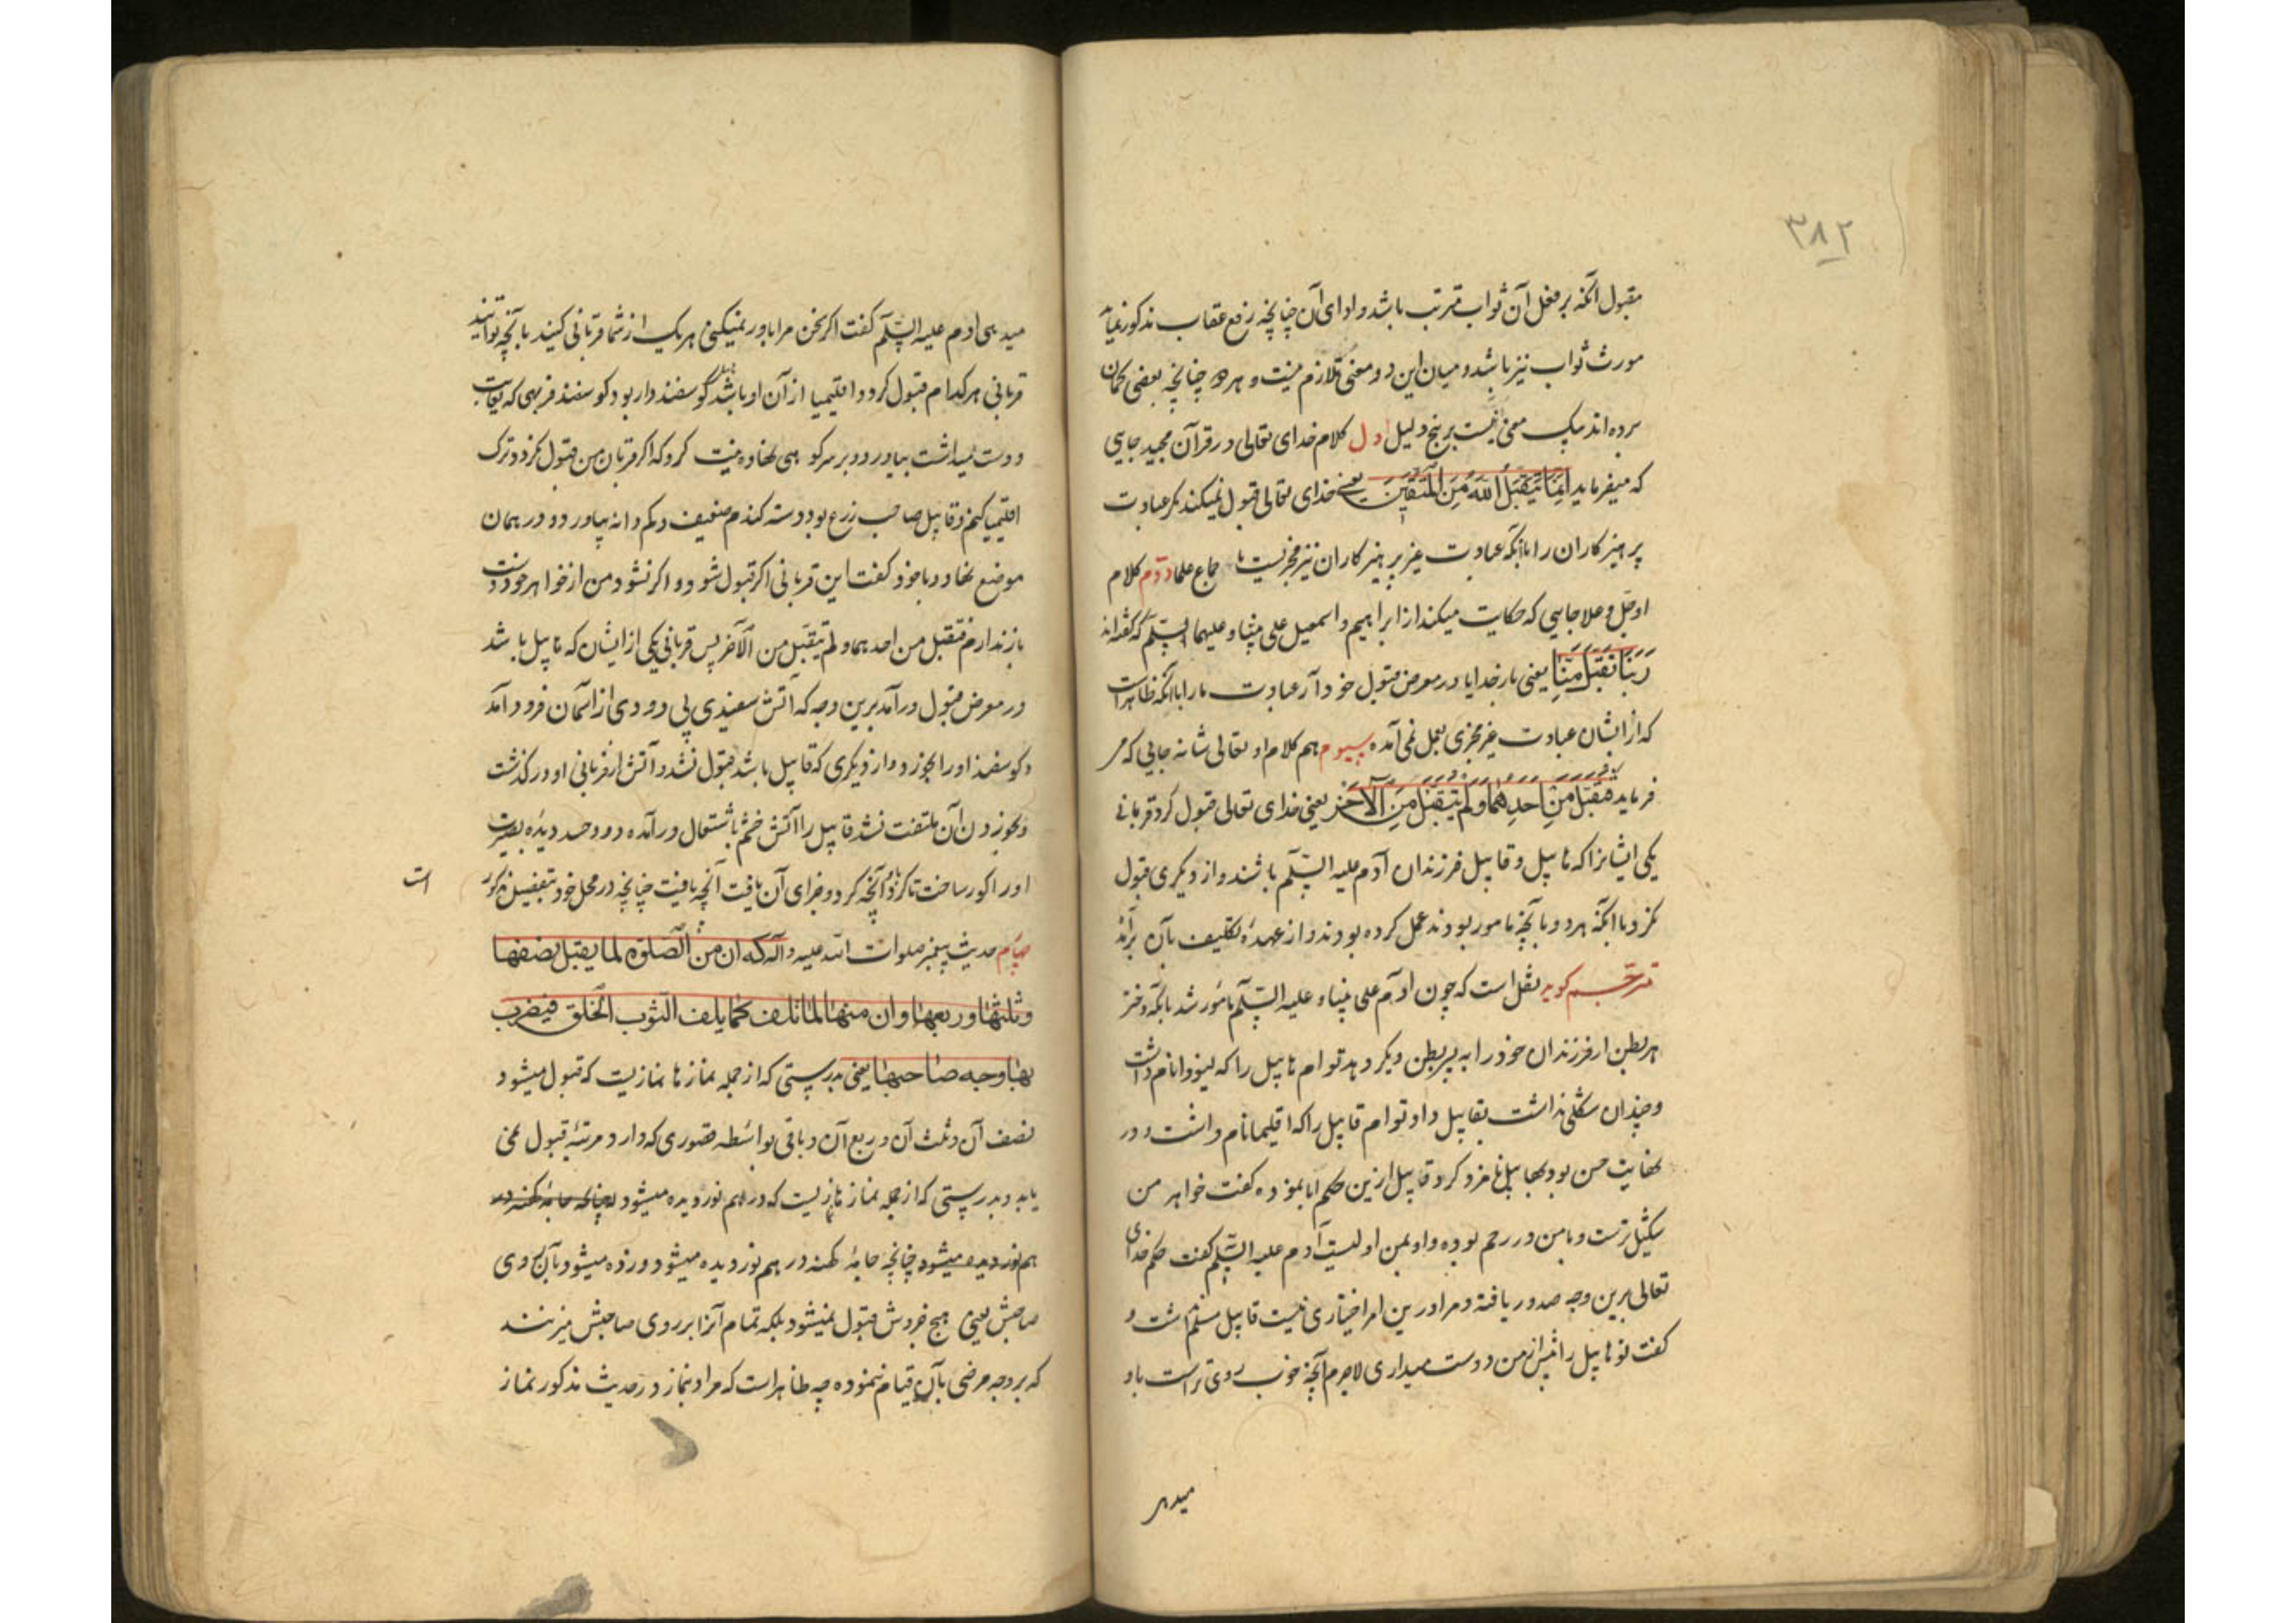 ۳۸۲
مقبول آنکه بر فعل آن ثواب مترتب باشد و ادای آن چنانچه رفع عقاب مذکور نماید
مورث ثواب نیز باشد و میان این دو معنی تلازم نیست و هر دو چنانچه بعضی گمان
برده اند بیک معنی نیست بر پنج دلیل اول کلام خدای تعالی در قرآن مجید جایی
که میفرماید اِنَّمَا یَتَقَبَّلُ اللّٰهُ مِنَ الْمُتَّقِینَ یعنی خدای تعالی قبول نمیکند مگر عبادت
پرهیزکاران را با آنکه عبادت غیر پرهیزکاران نیز مجزیست با جماع علما دوّم کلام
او جلّ و علا جایی که حکایت میکند از ابراهیم و اسمعیل علی نبینا و علیهما السّلم که گفته اند
رَبَّنَا تَقَبَّلْ مِنَّا یعنی بار خدایا در معرض قبول خود آر عبادت ما را با آنکه ظاهر است
که از ایشان عبادت غیر مجزی بعمل نمی آمده سیوم هم کلام او تعالی شانه جایی که می
فرماید فَتُقُبِّلَ مِنْ اَحَدِهِمَا وَلَمْ یُتَقَبَّلْ مِنَ الْآخَرِ یعنی خدای تعالی قبول کرد قربانی
یکی ایشانرا که هابیل و قابیل فرزندان آدم علیه السّلم باشند و از دیگری قبول
نکرد با آنکه هر دو بآنچه مامور بودند عمل کرده بودند و از عهدهٔ تکلیف بآن برآمده
مترجّم گوید نقل است که چون آدم علی نبینا و علیه السّلم مامور شد بآنکه دختر
هر بطن از فرزندان خود را به پسر بطن دیگر دهد توام هابیل را که لیوذا نام داشت
و چندان شکلی نداشت بقابیل داد و توام قابیل را که اقلیما نام داشت و در
نهایت حسن بود بهابیل نامزد کرد قابیل ازین حکم ابا نموده گفت خواهر من
شکیل ترست و با من در رحم بوده و او بمن اولیست آدم علیه السّلم گفت حکم خدای
تعالی برین وجه صدور یافته و مرا درین امر اختیاری نیست قابیل گفت
تو هابیل را بیش از من دوست میداری لاجرم آنچه خوب روی تر است باو
میدهی
میدهی آدم علیه السّلم گفت اگر سخن مرا باور نمیکنی هر یک از شما قربانی کنید بآنچه توانید
قربانی هر کدام قبول گردد اقلیمیا از آن او باشد هابیل گوسفند دار بود گوسفند فربهی که بغایت
دوست میداشت بیاورد و بر سر کوهی نهاد و نیت کرد که اگر قربان من قبول نکردد ترک
اقلیمیا کنم و قابیل صاحب زرع بود دسته گندم ضعیف و کم دانه بیاورد و در همان
موضع نهاد و با خود گفت این قربانی اگر قبول شود و اگر نشود من از خواهر خود دست
باز ندارم فتقبل من احدهما ولم یتقبّل من الآخر پس قربانی یکی از ایشان که هابیل باشد
در معرض قبول درآمد برین وجه که آتش سفیدی بی دودی از آسمان فرود آمد
و گوسفند او را بخورد و از دیگری که قابیل باشد قبول نشد و آتش از قربانی او درگذشت
و بخوردن آن ملتفت نشد قابیل را آتش خشم باشتعال درآمده دود حسد دیدهٔ بصیرت
او را کور ساخت تا کرد آنچه کرد و جزای آن یافت آنچه یافت چنانچه در محل خود بتفصیل مذکور
است
چهارم حدیث پیغمبر صلوات الله علیه و آله که ان من الصّلوة لما یقبل نصفها
وثلثها وربعها وان منها لما تلف کما یلف الثوب الخلق فیضرب
بها وجه صاحبها یعنی بدرستی که از جمله نمازها نمازیست که قبول میشود
نصف آن و ثلث آن و ربع آن و باقی بواسطه قصوری که دارد مرتبهٔ قبول نمی
یابد و بدرستی که از جمله نماز نمازیست که در هم نوردیده میشود چنانچه جامهٔ کهنه در
هم نوردیده میشود چنانچه جامهٔ کهنه در هم نوردیده میشود و زده میشود بآن روی
صاحبش یعنی هیچ جزوش قبول نمیشود بلکه تمام آنرا بر روی صاحبش میزنند
که بر وجه مرضی بآن قیام ننموده چه ظاهر است که مراد بنماز در حدیث مذکور نماز